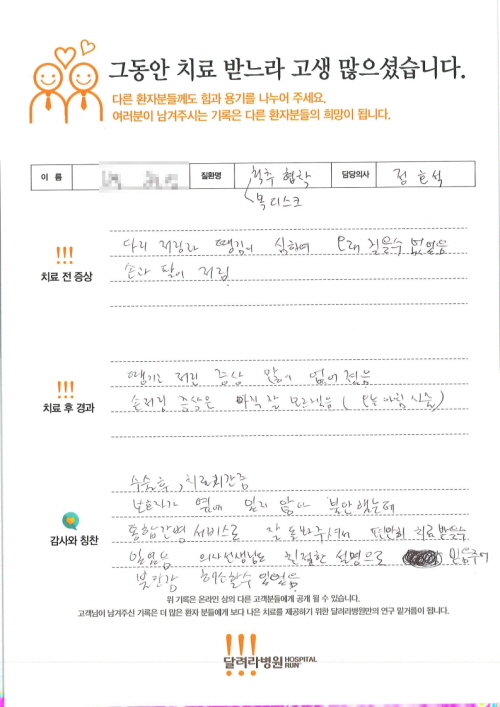 그동안 치료 받느라 고생 많으셨습니다.
다른 환자분들께도 힘과 용기를 나누어 주세요.
여러분이 남겨주시는 기록은 다른 환자분들의 희망이 됩니다.
이 름 질환명 척추 협착 담당의사 정효석
목디스크
다리 저림과 땡김이 심하여 오래 걸을수 없었음
!!!
치료 전 증상
손과 팔이 저림
땡기고 저린 증상 많이 없어졌음
!!!
치료 후 경과
손저림 증상은 아직 잘 모르겠음 (오늘 아침 시술)
수술후, 치료회간중
보호자가 옆에 있지 않아 불안했는데
감사와 칭찬
통합간병 서비스로 잘 돌봐주셔서 편안히 치료받을수
있었음 의사선생님도 친절한 설명으로 믿음주어
불안감 해소할수 있었음
위 기록은 온라인 상의 다른 고객분들에게 공개 될 수 있습니다.
고객님이 남겨주신 기록은 더 많은 환자 분들에게 보다 나은 치료를 제공하기 위한 달려라병원만의 연구 밑거름이 됩니다.
!!!
달려라병원 HOSPITAL RUN